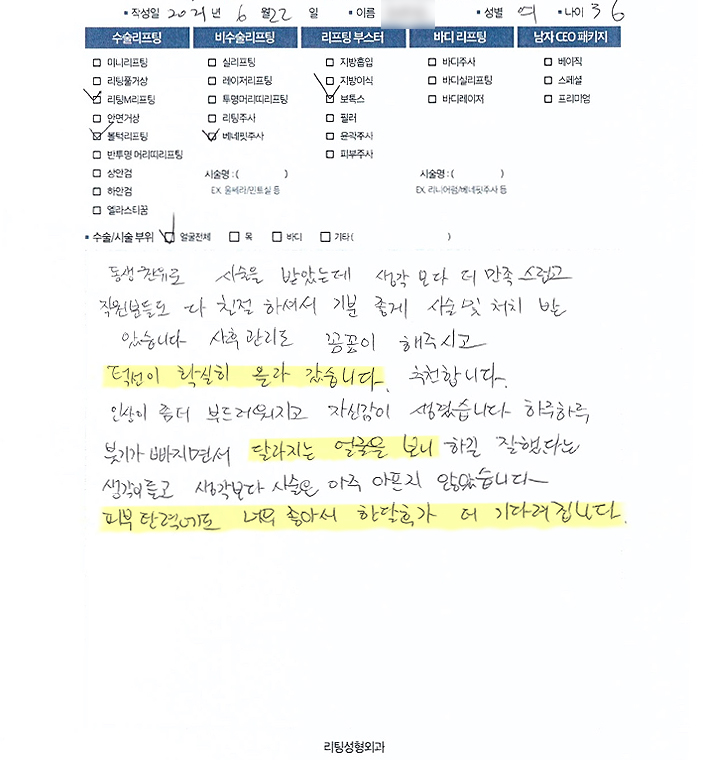 작성일 2021년 6월 22일 이름 성별 여 나이 36
수술리프팅 비수술리프팅 리프팅 부스터 바디 리프팅 남자 CEO 패키지
미니리프팅 실리프팅 지방흡입 바디주사 베이직
리팅풀거상 레이저리프팅 지방이식 바디실리프팅 스페셜
리팅M리프팅 투명머리띠리프팅 보톡스 바디레이저 프리미엄
안면거상 리팅주사 필러
볼턱리프팅 베네핏주사 윤곽주사
반투명 머리띠리프팅 피부주사
상안검 시술명 : ( ) 시술명 : ( )
하안검 EX. 울쎄라/민트실 등 EX. 리니어펌/베네핏주사 등
엘라스티꿈
수술/시술 부위 얼굴전체 목 바디 기타 ( )
동생 권유로 시술을 받았는데 생각 보다 더 만족스럽고
직원분들도 다 친절 하셔서 기분 좋게 시술 및 처치 받
았습니다 사후관리도 꼼꼼이 해주시고
턱선이 확실히 올라 갔습니다. 추천합니다.
인상이 좀더 부드러워지고 자신감이 생겼습니다 하루하루
붓기가 빠지면서 달라지는 얼굴을 보니 하길 잘했다는
생각이들고 생각보다 시술은 아주 아프지 않았습니다
피부 탄력에도 너무 좋아서 한달후가 더 기다려집니다.
리팅성형외과